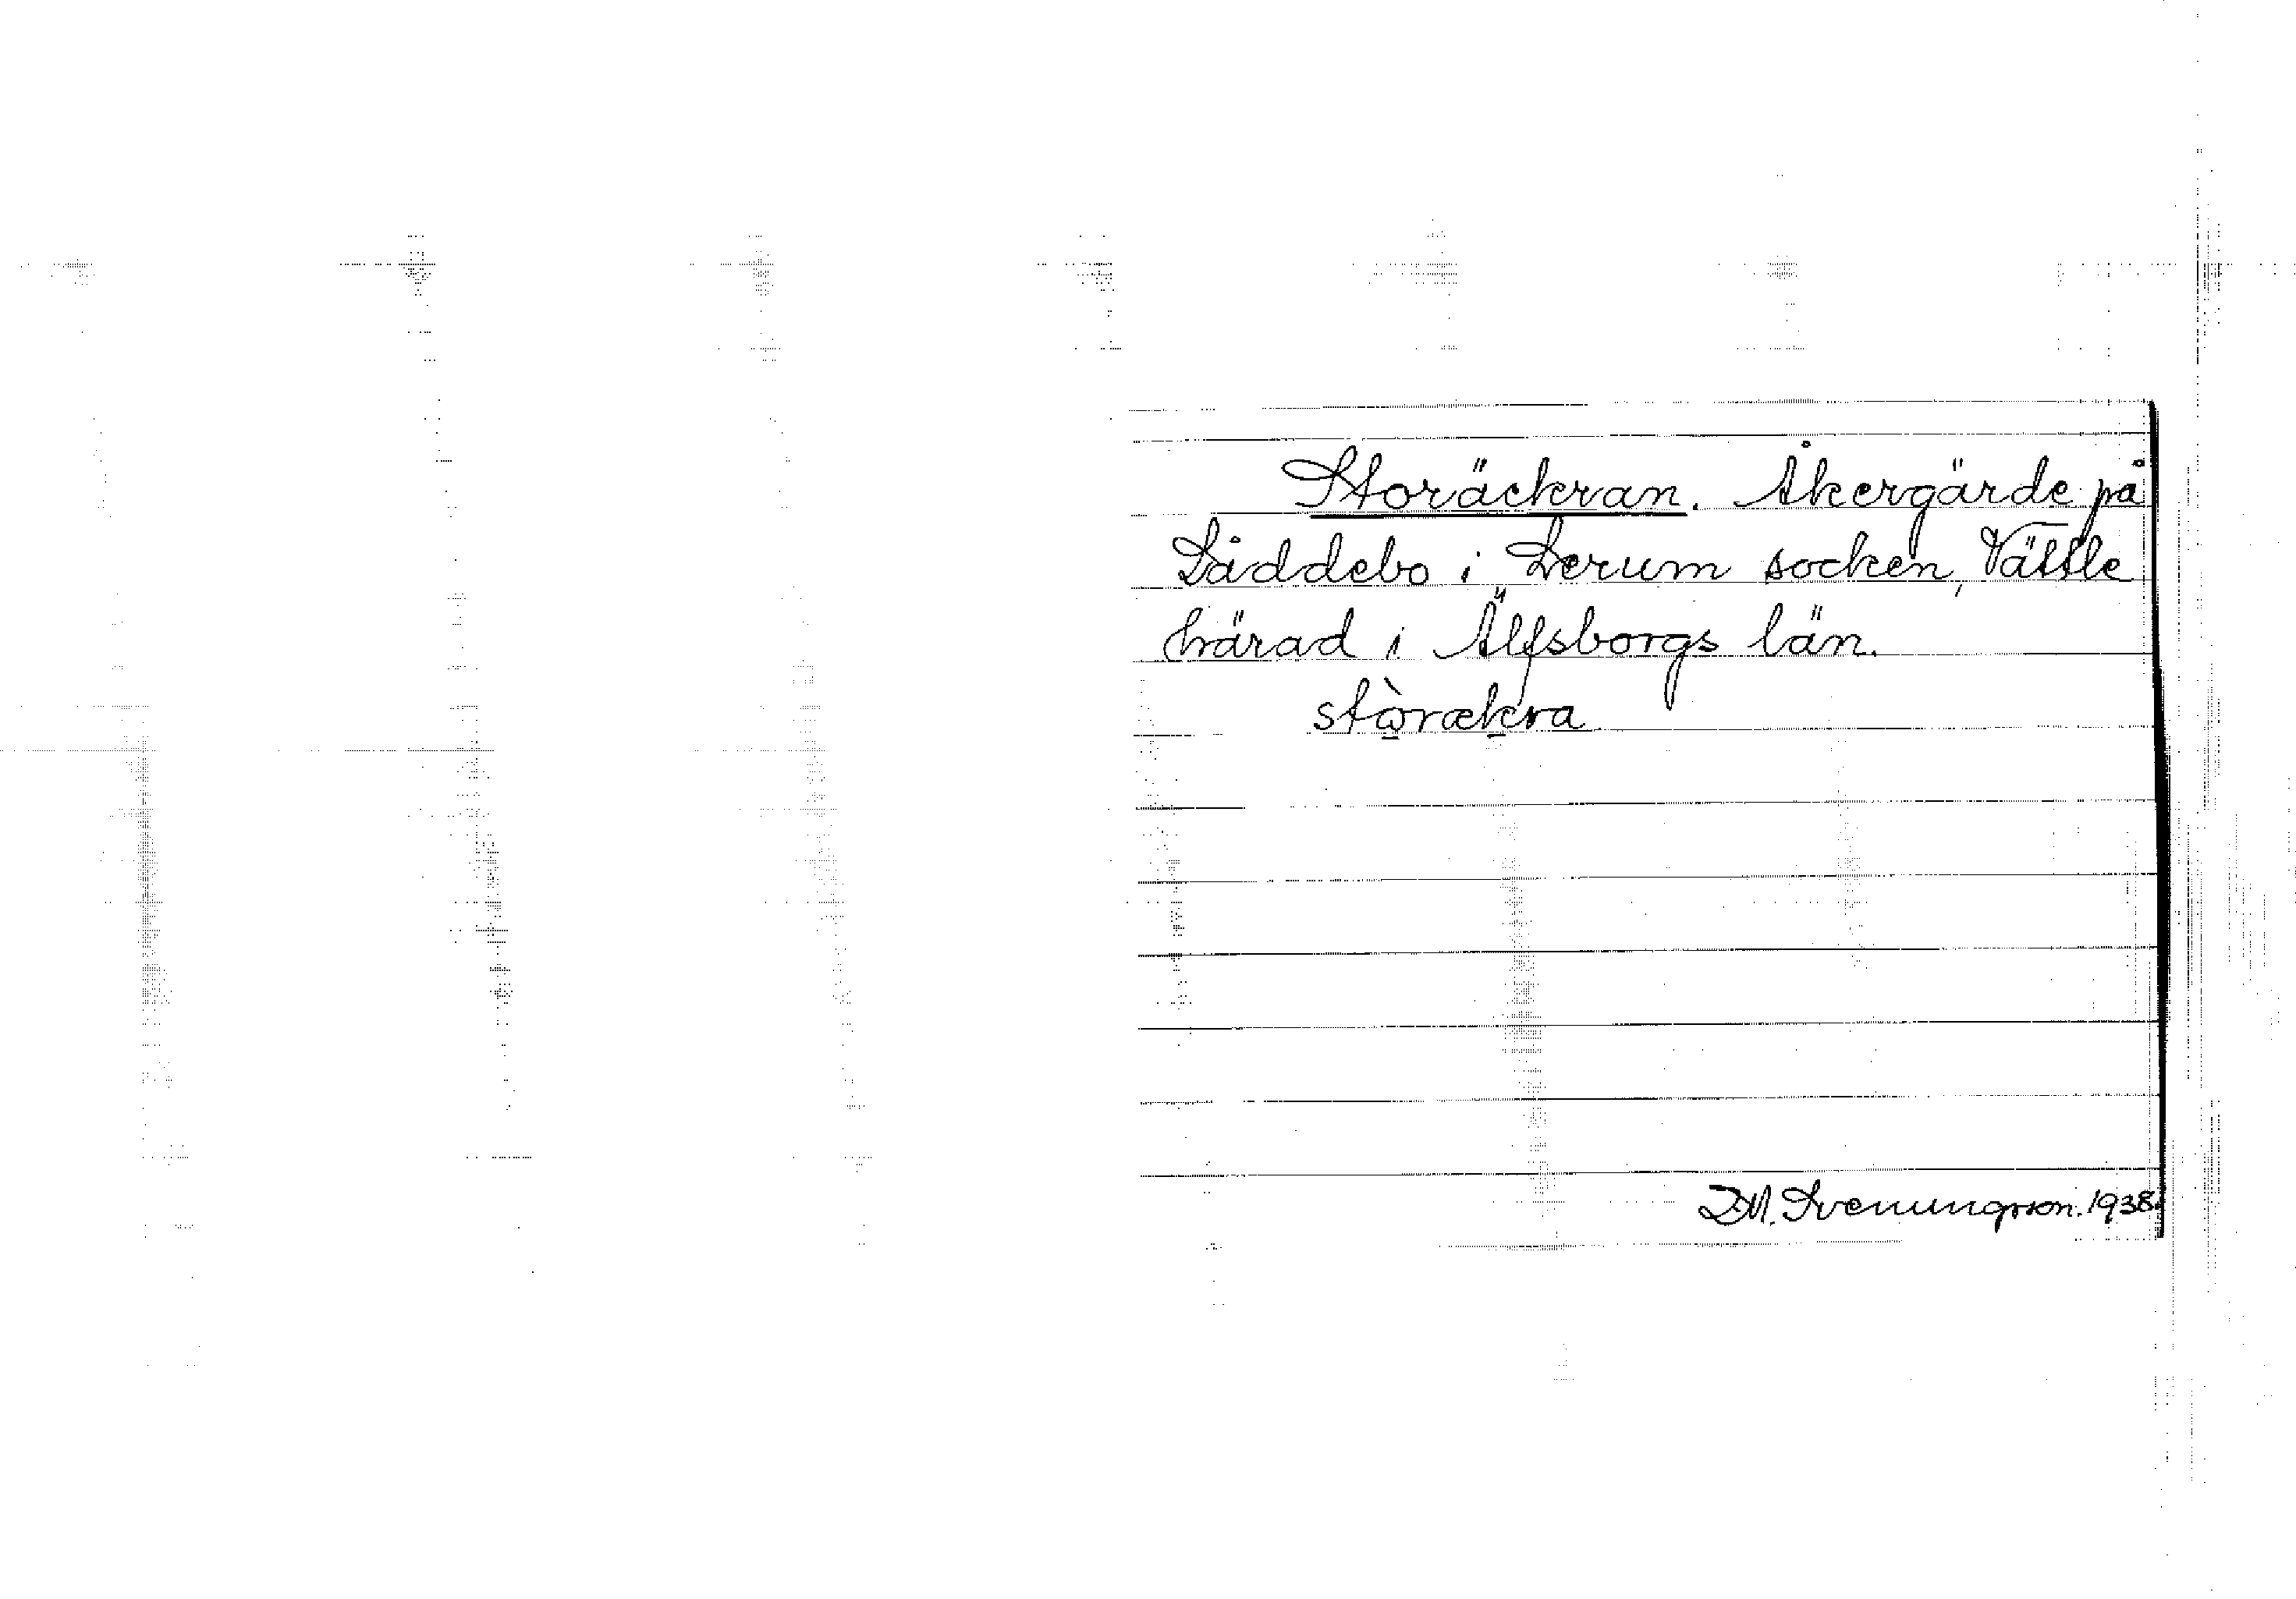 Storäckran. Åkergärde på
Låddebo i Lerum socken, Vättle
härad i Älfsborgs län.
stòrækra
D.M. Svenungsson. 1938.